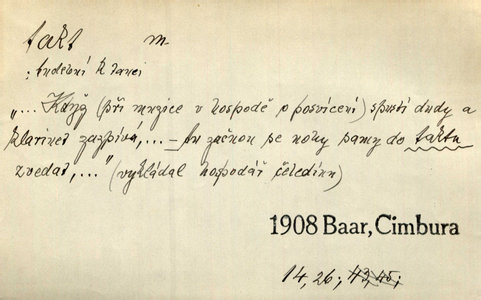 takt m
; hudební k tanci
„... Když (při muzice v hospodě o posvícení) spustí dudy a
klarinet zazpívá,... – tu začnou se nohy samy do taktu
zvedat,..." (vykládal hospodář čeledínu)
1908 Baar, Cimbura
14, 26; 43, 45;